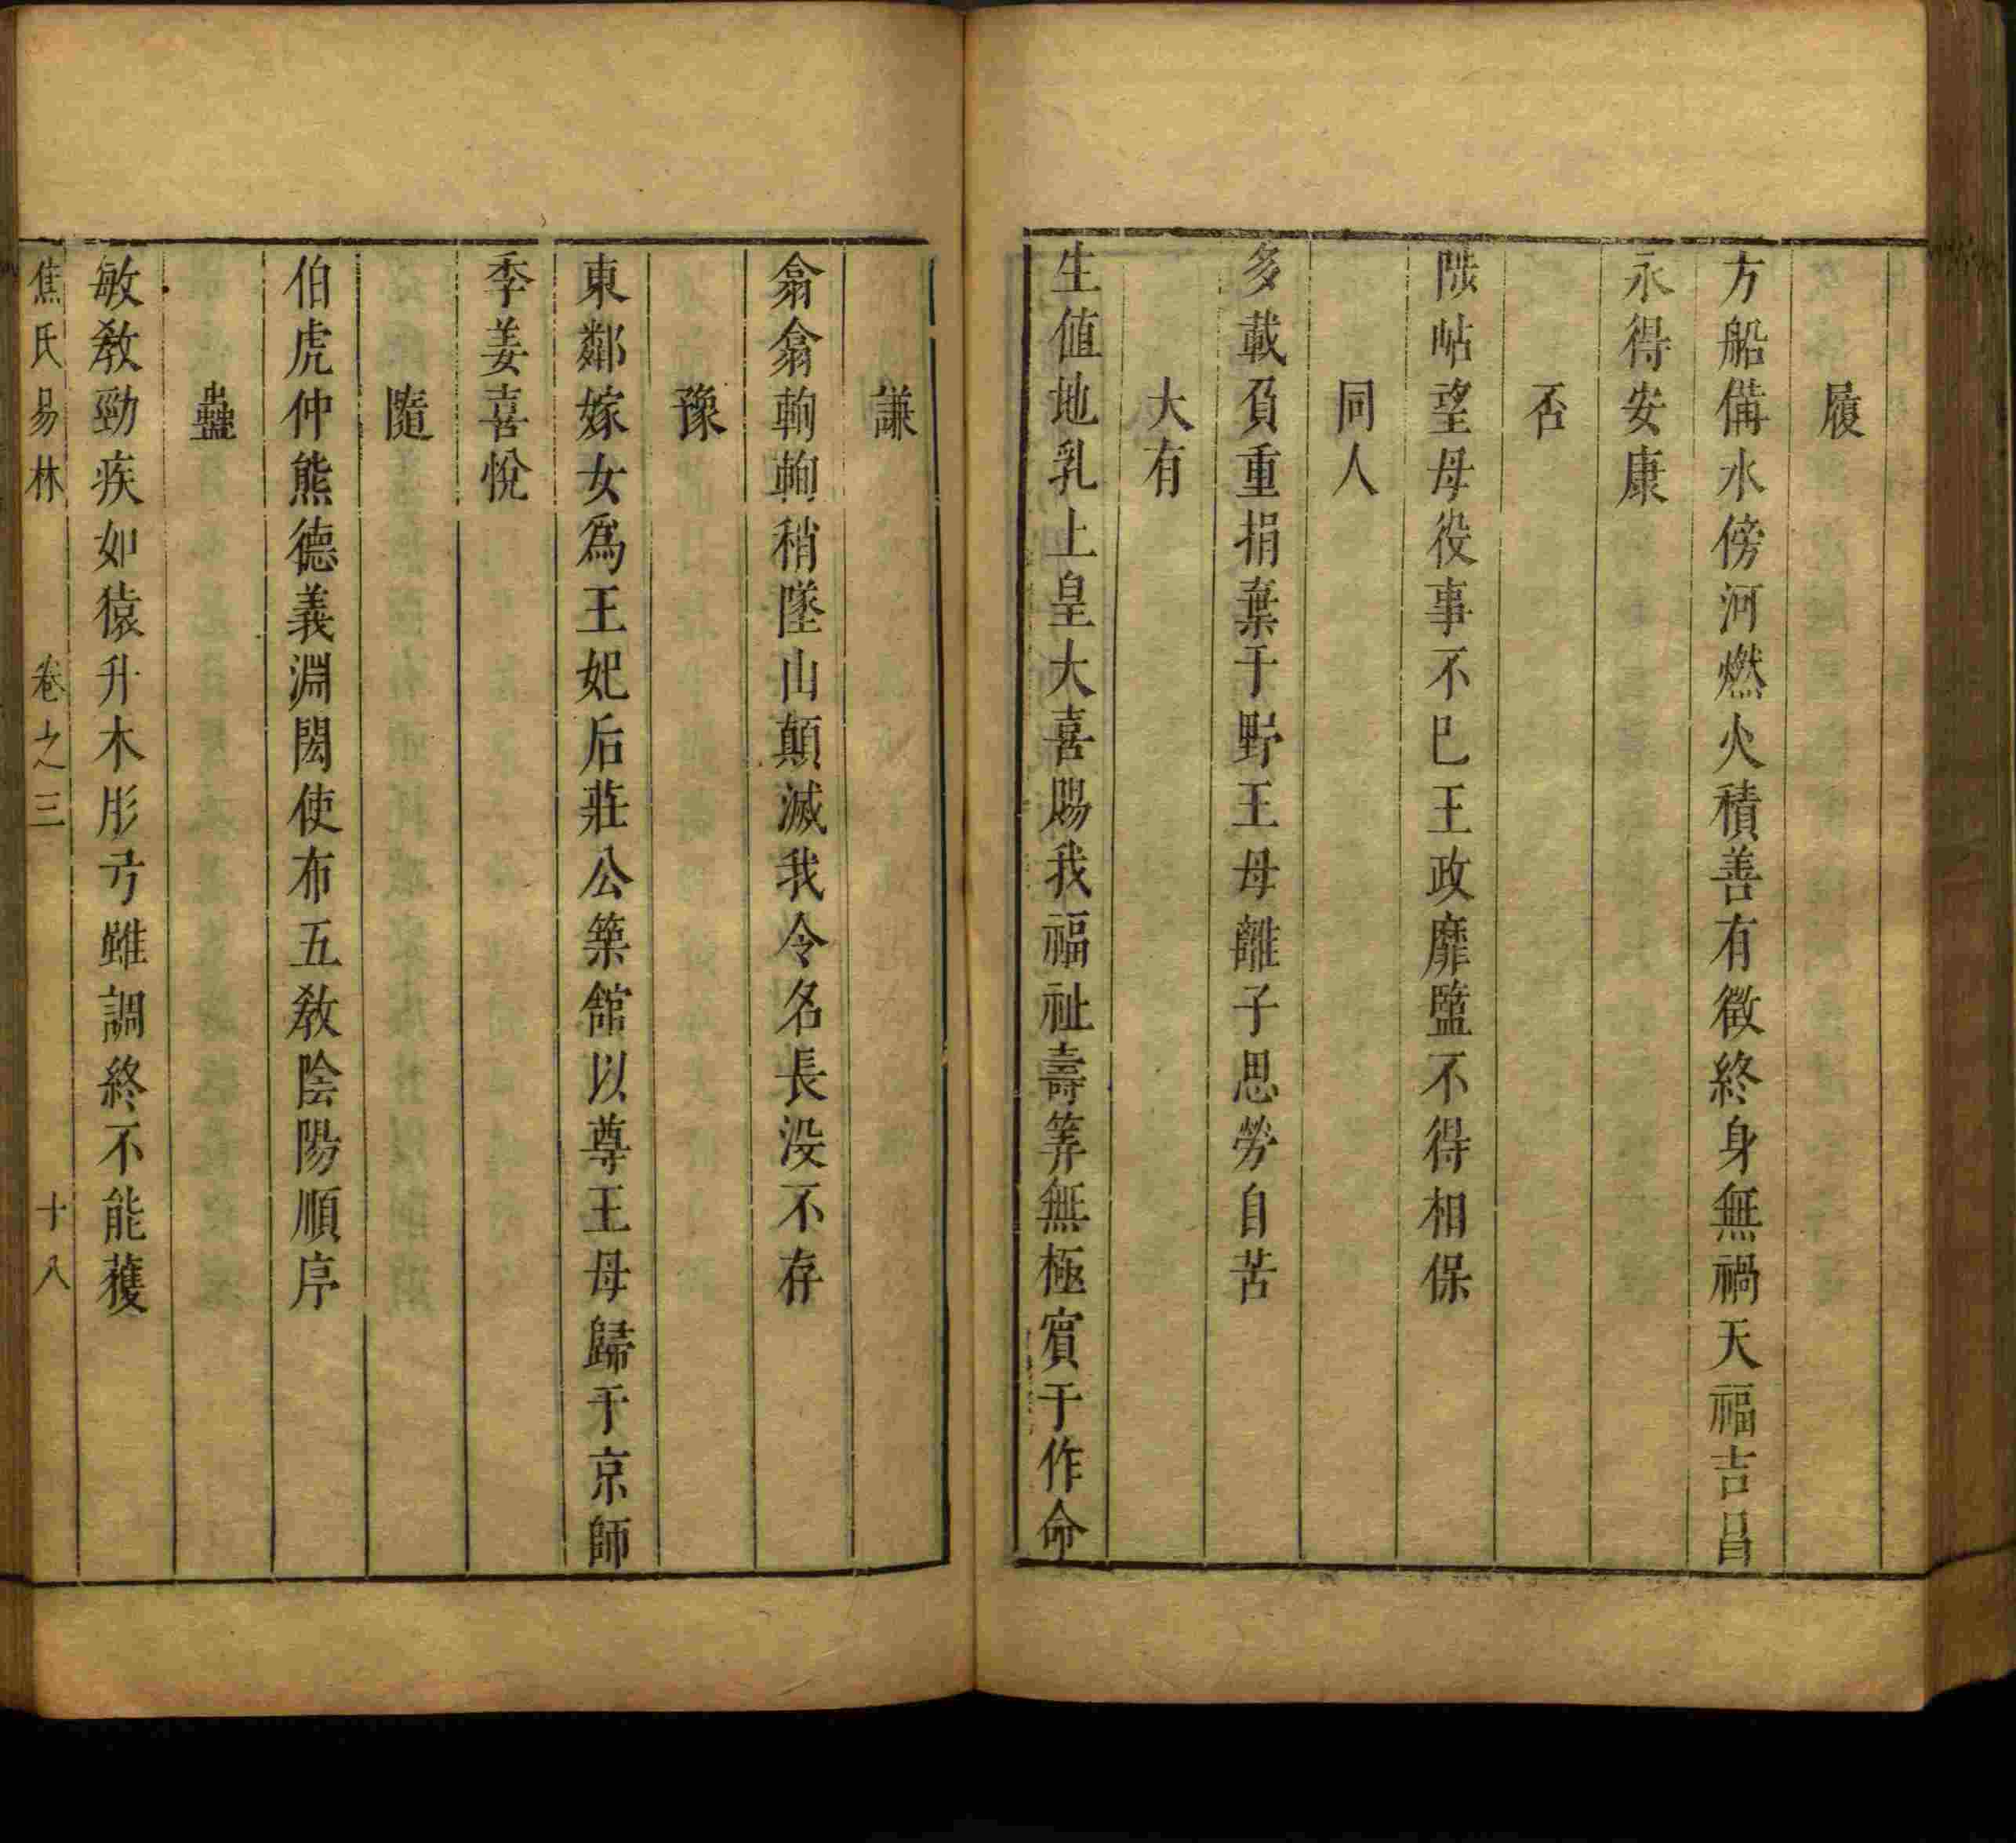 履
方船備水傍河燃火積善有徵終身無禍天福吉昌
永得安康
否
陟岵望母役事不已王政靡盬不得相保
同人
多載負重捐棄于野王母離子思勞自苦
大有
生値地乳上皇大喜賜我福祉壽筭無極賔于作命
謙
翕翕䡘䡘稍墜山顛滅我令名長没不存
豫
東鄰嫁女爲王妃后莊公築舘以尊王母歸于京師
季姜喜悅
隨
伯虎仲熊德義淵閎使布五教陰陽順序
蠱
敏教勁疾如猿升木彤弓雖調終不能獲
焦氏易林 卷之三 十八